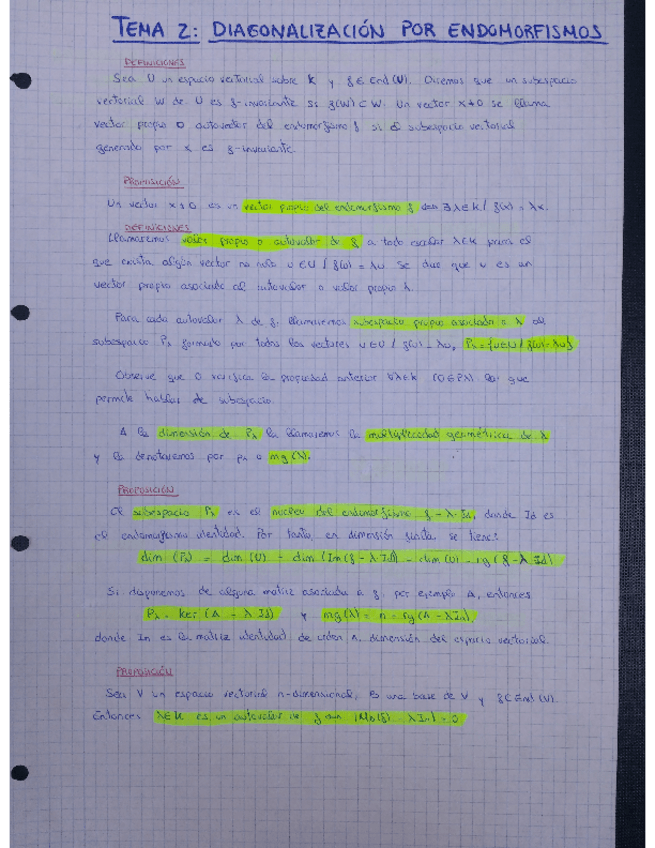 TEMA 2: DIAGONALIZACIÓN POR ENDOMORFISMOS
DEFINICIONES
Sea U un espacio vectorial sobre k y f ∈ End (U). Diremos que un subespacio
vectorial W de U es f-invariante si f(W) ⊂ W. Un vector x≠0 se llama
vector propio o autovector del endomorfismo f si el subespacio vectorial
generado por x es f-invariante.
PROPOSICIÓN
Un vector x≠0 es un vector propio del endomorfismo f ∃λ∈k / f(x) = λx.
DEFINICIONES
Llamaremos valor propio o autovalor de f a todo escalar λ∈k para el
que exista algún vector no nulo u∈U / f(u) = λu. Se dice que u es un
vector propio asociado al autovalor o valor propio λ.
Para cada autovalor λ de f, llamaremos subespacio propio asociado a λ al
subespacio Pλ formado por todos los vectores u∈U / f(u) = λu, Pλ = {u∈U / f(u) = λu}
Observe que 0 verifica la propiedad anterior ∀λ∈k (0∈Pλ) lo que
permite hablar de subespacio.
A la dimensión de Pλ la llamaremos la multiplicidad geométrica de λ
y la denotaremos por pλ o mg(λ).
PROPOSICIÓN
El subespacio Pλ es el núcleo del endomorfismo f - λ·Id, donde Id es
el endomorfismo identidad. Por tanto, en dimensión finita se tiene:
dim (Pλ) = dim (U) - dim (Im(f - λ Id)) = dim (U) - rg (f - λ Id)
Si disponemos de alguna matriz asociada a f, por ejemplo A, entonces
Pλ = ker (A - λ Id) y mg(λ) = n - rg(A - λIn),
donde In es la matriz identidad de orden n, dimensión del espacio vectorial.
PROPOSICIÓN
Sea V un espacio vectorial n-dimensional, B una base de V y f ∈ End (V).
Entonces λ∈k es un autovalor de f |MB(f) - λIn| = 0